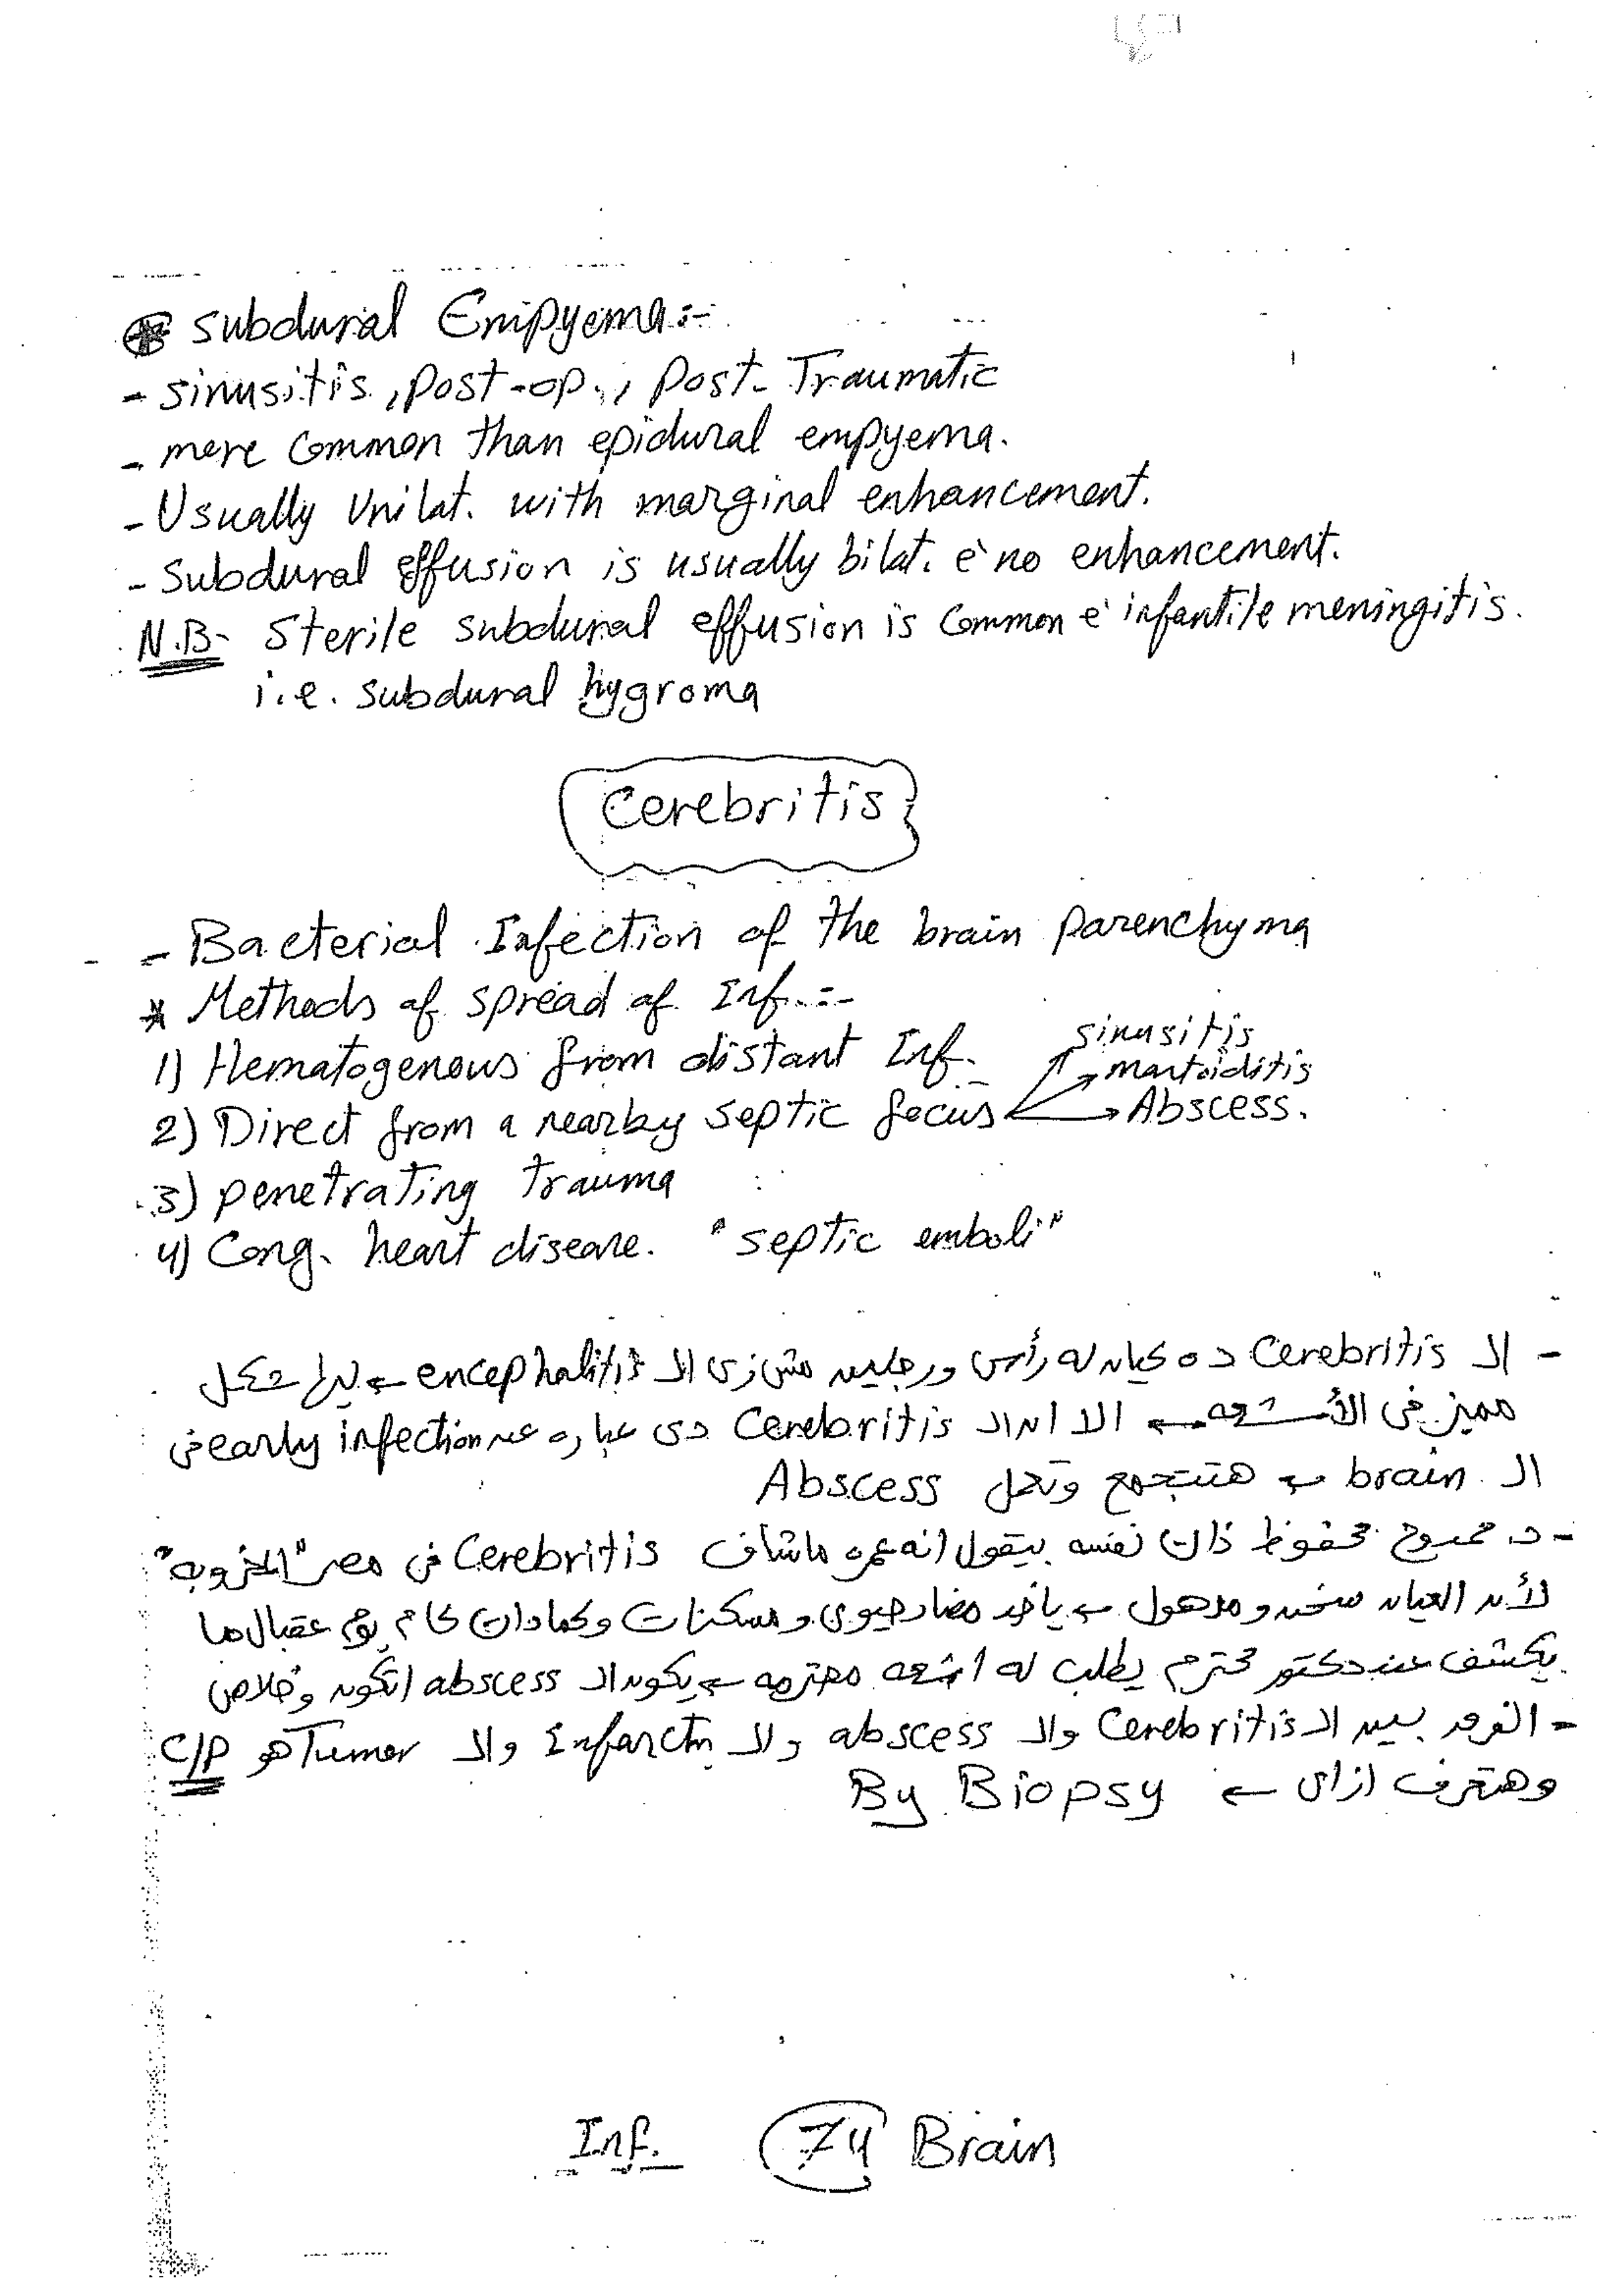 * Subdural Empyema:-
- sinusitis, post-op., post-Traumatic
- more common than epidural empyema.
- Usually Unilat. with marginal enhancement.
- Subdural effusion is usually bilat. è no enhancement.
N.B- Sterile subdural effusion is common è infantile meningitis.
i.e. subdural hygroma
Cerebritis
- Bacterial Infection of the brain parenchyma
* Methods of spread of Inf. :-
1) Hematogenous from distant Inf.
2) Direct from a nearby septic focus
sinusitis
mastoiditis
Abscess.
3) penetrating trauma
4) Cong. heart disease. "septic emboli"
- الـ Cerebritis ده كيان له رأس ورجلين مش زى الـ encephalitis ← ليها شكل
مميز فى الأشعه ← الا ان الـ Cerebritis دى عباره عن early infection فى
الـ brain ← هتتجمع وتعمل Abscess
- د. ممدوح محفوظ ذات نفسه بيقول انه عمره ماشاف Cerebritis فى مصر "المخروبه"
لأن العيان سخن ومدهول ← ياخد مضاد حيوى ومسكنات وكمادات كام يوم عقبال ما
يكشف عند دكتور محترم يطلب له اشعه محترمه ← يكون الـ abscess اتكون وخلاص
- الفرق بين الـ Cerebritis والـ abscess والـ Infarctn والـ Tumor هو C/P
وهتعرف ازاى ← By Biopsy
Inf. 74 Brain